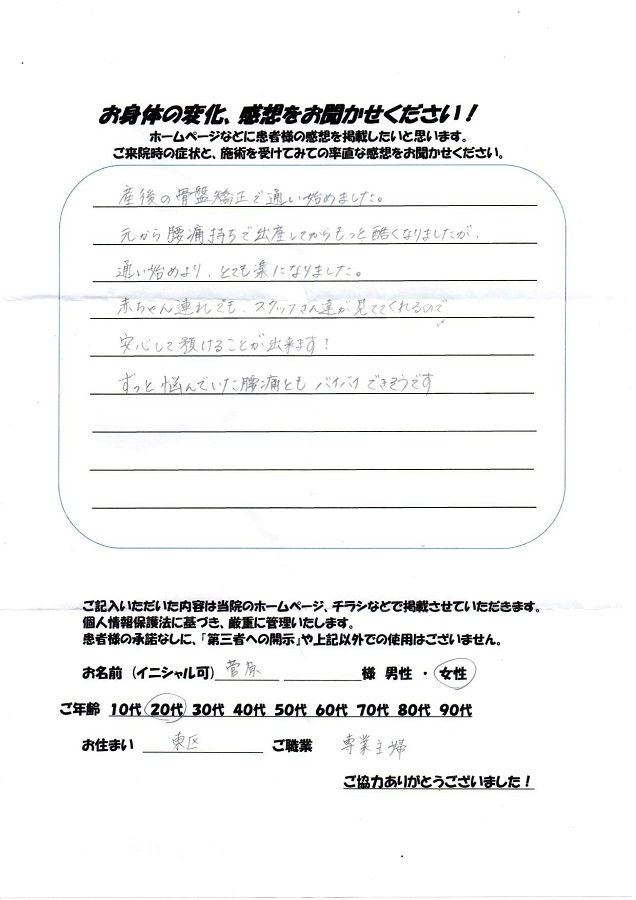 お身体の変化、感想をお聞かせください！
ホームページなどに患者様の感想を掲載したいと思います。
ご来院時の症状と、施術を受けてみての率直な感想をお聞かせください。
産後の骨盤矯正で通い始めました。
元から腰痛持ちで出産してからもっと酷くなりましたが、
通い始めより、とても楽になりました。
赤ちゃん連れでも、スタッフさん達が見ててくれるので
安心して預けることが出来ます！
ずっと悩んでいた腰痛とも バイバイ できそうです
ご記入いただいた内容は当院のホームページ、チラシなどで掲載させていただきます。
個人情報保護法に基づき、厳重に管理いたします。
患者様の承諾なしに、「第三者への開示」や上記以外での使用はございません。
お名前（イニシャル可） 菅原 様 男性 ・ 女性
ご年齢 10代 20代 30代 40代 50代 60代 70代 80代 90代
お住まい 東区 ご職業 専業主婦
ご協力ありがとうございました！